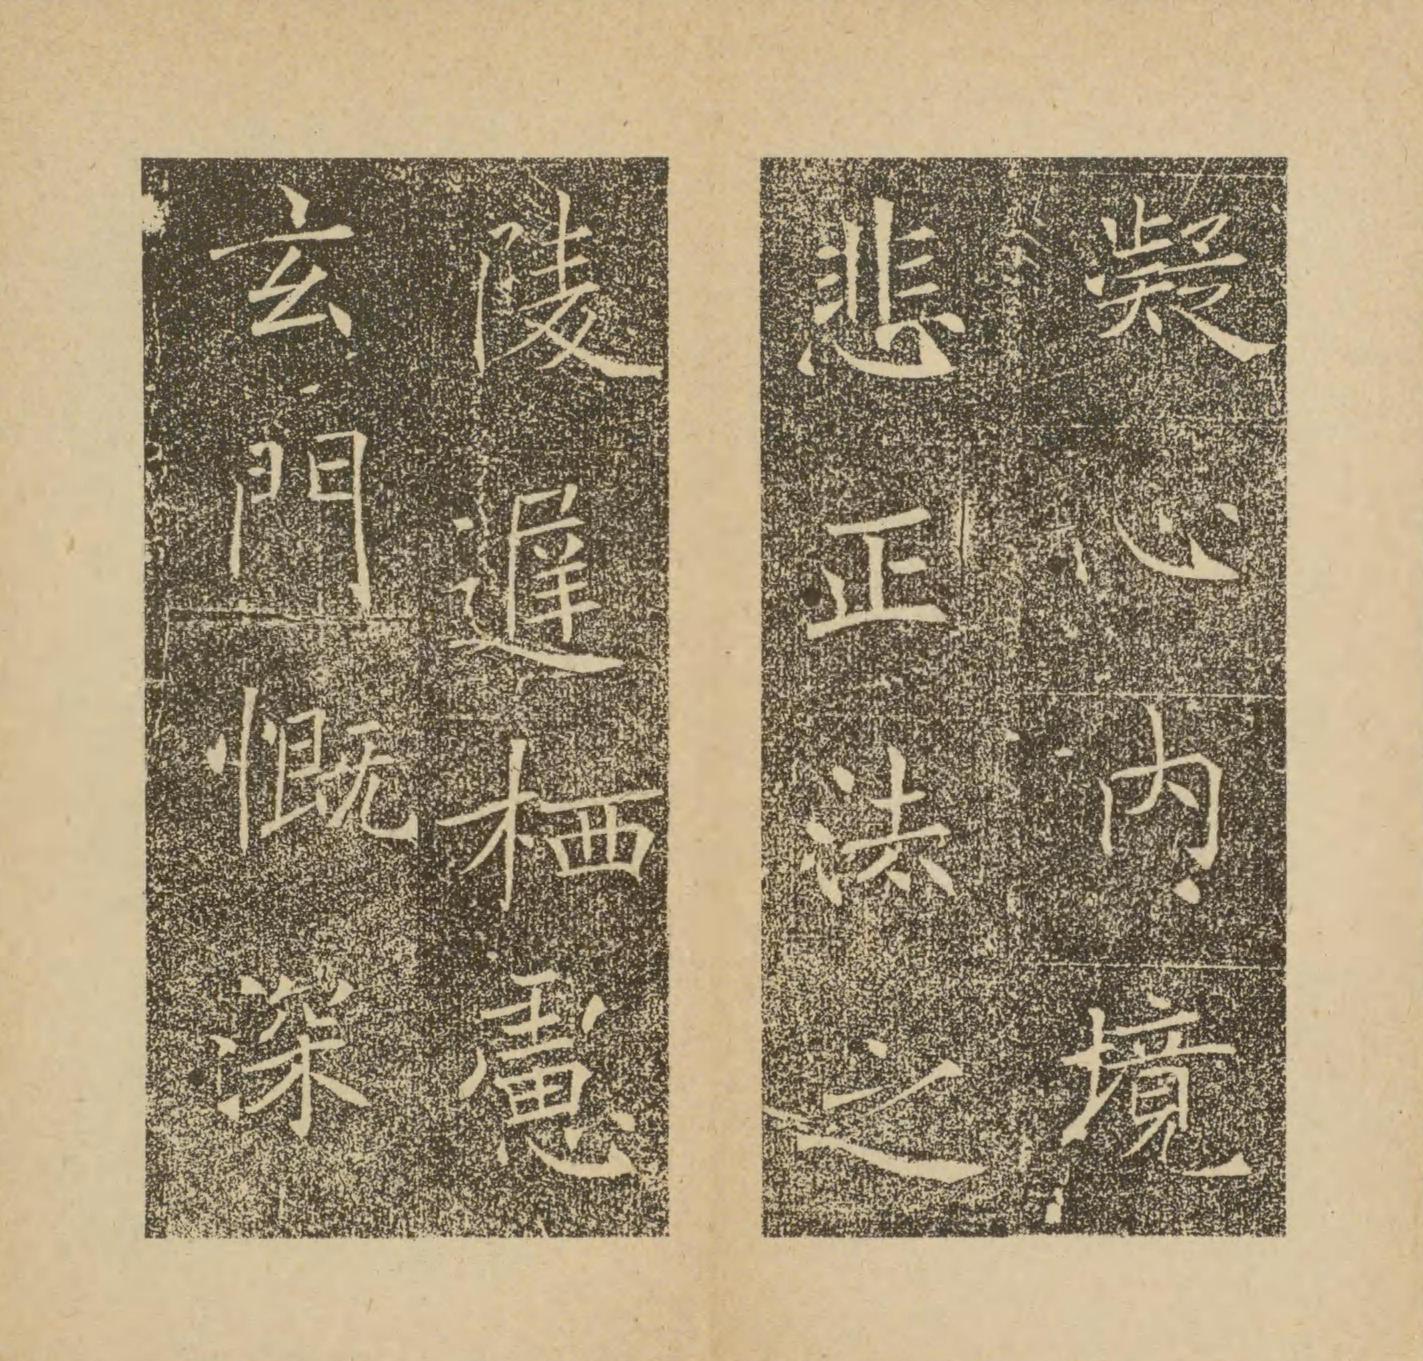 凝心内境
悲正法之
陵遲栖慮
玄門慨深